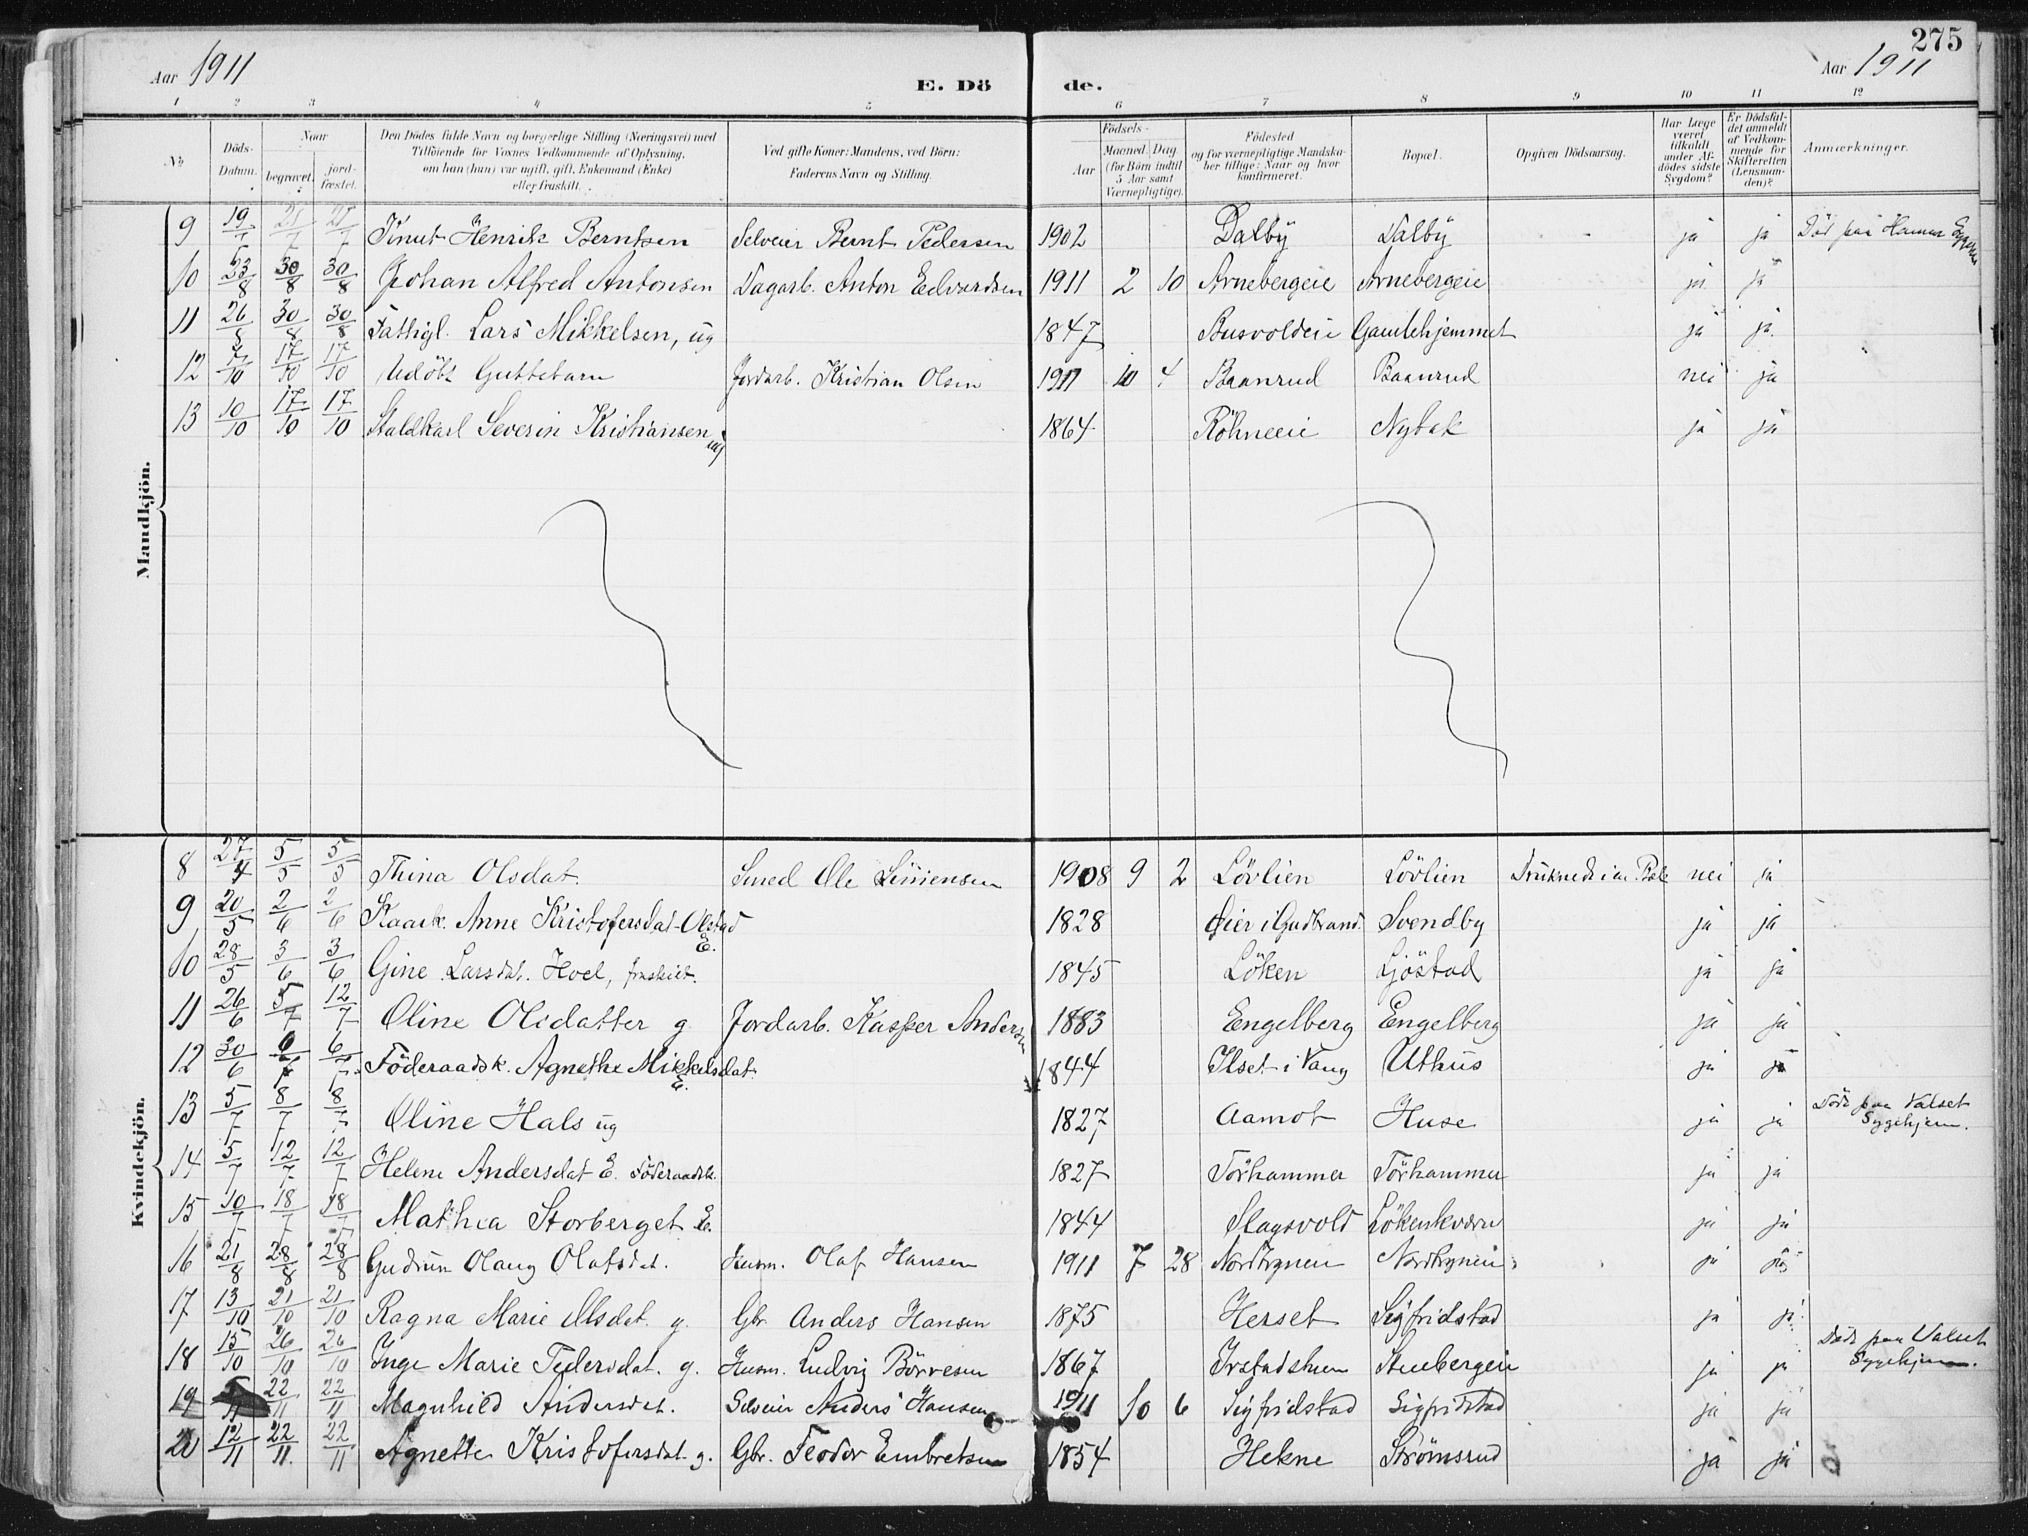 275
Aar 1911 E. Dö de. Aar 1911
1 2 3 4 5 6 7 8 9 10 11 12
No Döds-Datum. Naar begravet. jordfæstet. Den Dödes fulde Navn og borgerlige Stilling (Næringsvei) med Tilföiende for Voxnes Vedkommende af Oplysning, om han (hun) var ugift, gift, Enkemand (Enke) eller fraskilt. Ved gifte Koner: Mandens, ved Börn: Faderens Navn og Stilling. Födsels- Aar Maaned Dag (for Börn indtil 5 Aar samt Værnepligtige). Födested og for værnepligtige Mandskaber tillige: Naar og hvor konfirmeret. Bopæl. Opgiven Dödsaarsag. Har Læge været tilkaldt under Afdödes sidste Sygdom? Er Dödsfaldet anmeldt af Vedkommende for Skifteretten (Lensmanden)? Anmærkninger.
Mandkjön.
9 19/7 21/7 21/7 Knut Henrik Berntsen Selveier Bernt Pedersen 1902 Dalby Dalby ja ja Död paa Hamar
10 23/8 30/8 30/8 Johan Alfred Antonsen Dagarb. Anton Edvardsen 1911 2 10 Arnebergeie Arnebergeie ja ja
11 26/8 30/8 30/8 Fattigl. Lars Mikkelsen, ug 1847 Busvoldeie Gamlehjemmet ja ja
12 4/10 17/10 17/10 Udöbt Guttebarn Jordarb. Kristian Olsen 1911 10 4 Baanrud Baanrud nei ja
13 10/10 17/10 17/10 Staldkarl Severin Kristiansen ug 1864 Röhneeie Nybak ja ja
Kvindekjön.
8 27/4 5/5 5/5 Thina Olsdat. Smed Ole 1908 9 2 Lövlien Lövlien nei ja
9 20/5 2/6 2/6 Kaark. Anne Kristofersdat. Olstad E. 1828 Öier i Gudbrand. Svendby ja ja
10 28/5 3/6 3/6 Gine Larsdat. Hoel, fraskilt. 1845 Löken Ljöstad ja ja
11 26/6 5/7 12/7 Oline Olsdatter g. Jordarb. Kasper Andersen 1883 Engelberg Engelberg ja ja
12 30/6 6/7 6/7 Föderaadsk. Agnethe Mikkelsdat. E. 1844 Ilset i Vang Uthus ja ja
13 5/7 8/7 8/7 Oline Hals ug 1827 Aamot Huse ja ja Död paa Valset Sygehjem.
14 5/7 12/7 12/7 Helene Andersdat E. Föderaadsk. 1827 Torhammer Torhammer ja ja
15 10/7 18/7 18/7 Mathea Storberget E. 1844 Slagsvold Lökenkværn ja ja
16 21/8 28/8 28/8 Gudrun Olaug Olafsdat. Husm. Olaf Hansen 1911 7 28 ja ja
17 13/10 21/10 21/10 Ragna Marie Olsdat. g. Gbr. Anders Hansen 1875 Herset Sigfridstad ja ja
18 15/10 26/10 26/10 Inge Marie Pedersdat. g. Husm. Ludvig Börresen 1867 Stenbergeie ja ja Död paa Valset Sygehjem.
19 5/11 22/11 22/11 Magnhild Andersdat. Selveier Anders Hansen 1911 10 6 Sigfridstad Sigfridstad ja ja
20 12/11 22/11 22/11 Agnette Kristofersdat. g. Gbr. Teodor Embretsen 1854 Hekne Strömsrud ja ja